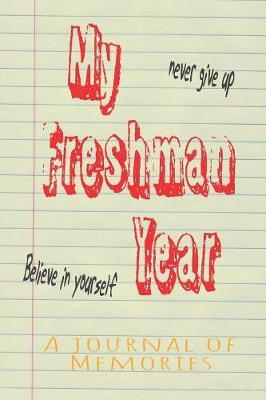 My
never give up
Freshman
Year
Believe in yourself
A Journal of
Memories